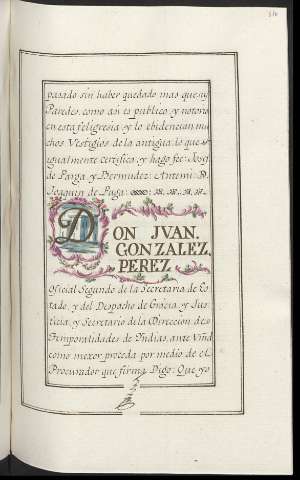 pasado sin haber quedado mas que
Paredes, como àn es publico, y notorio
en esta feligresia, y lo ebidencian mu
chos Vestigios de la antigua, lo que
igualmente certifica, y hago fee: Josef
de Parga y Bermudez: Antemi: D.
Joaquin de Puga:
DON JVAN.
GONZALEZ,
PEREZ.
Oficial Segundo de la Secretaria de Es
tado, y del Despacho de Gracia, y Jus
ticia, y Secretario de la Direccion de
Temporalidades de Indias, ante Vmd
como mexor proceda por medio de el
Procurador que firma, Digo: Que yo